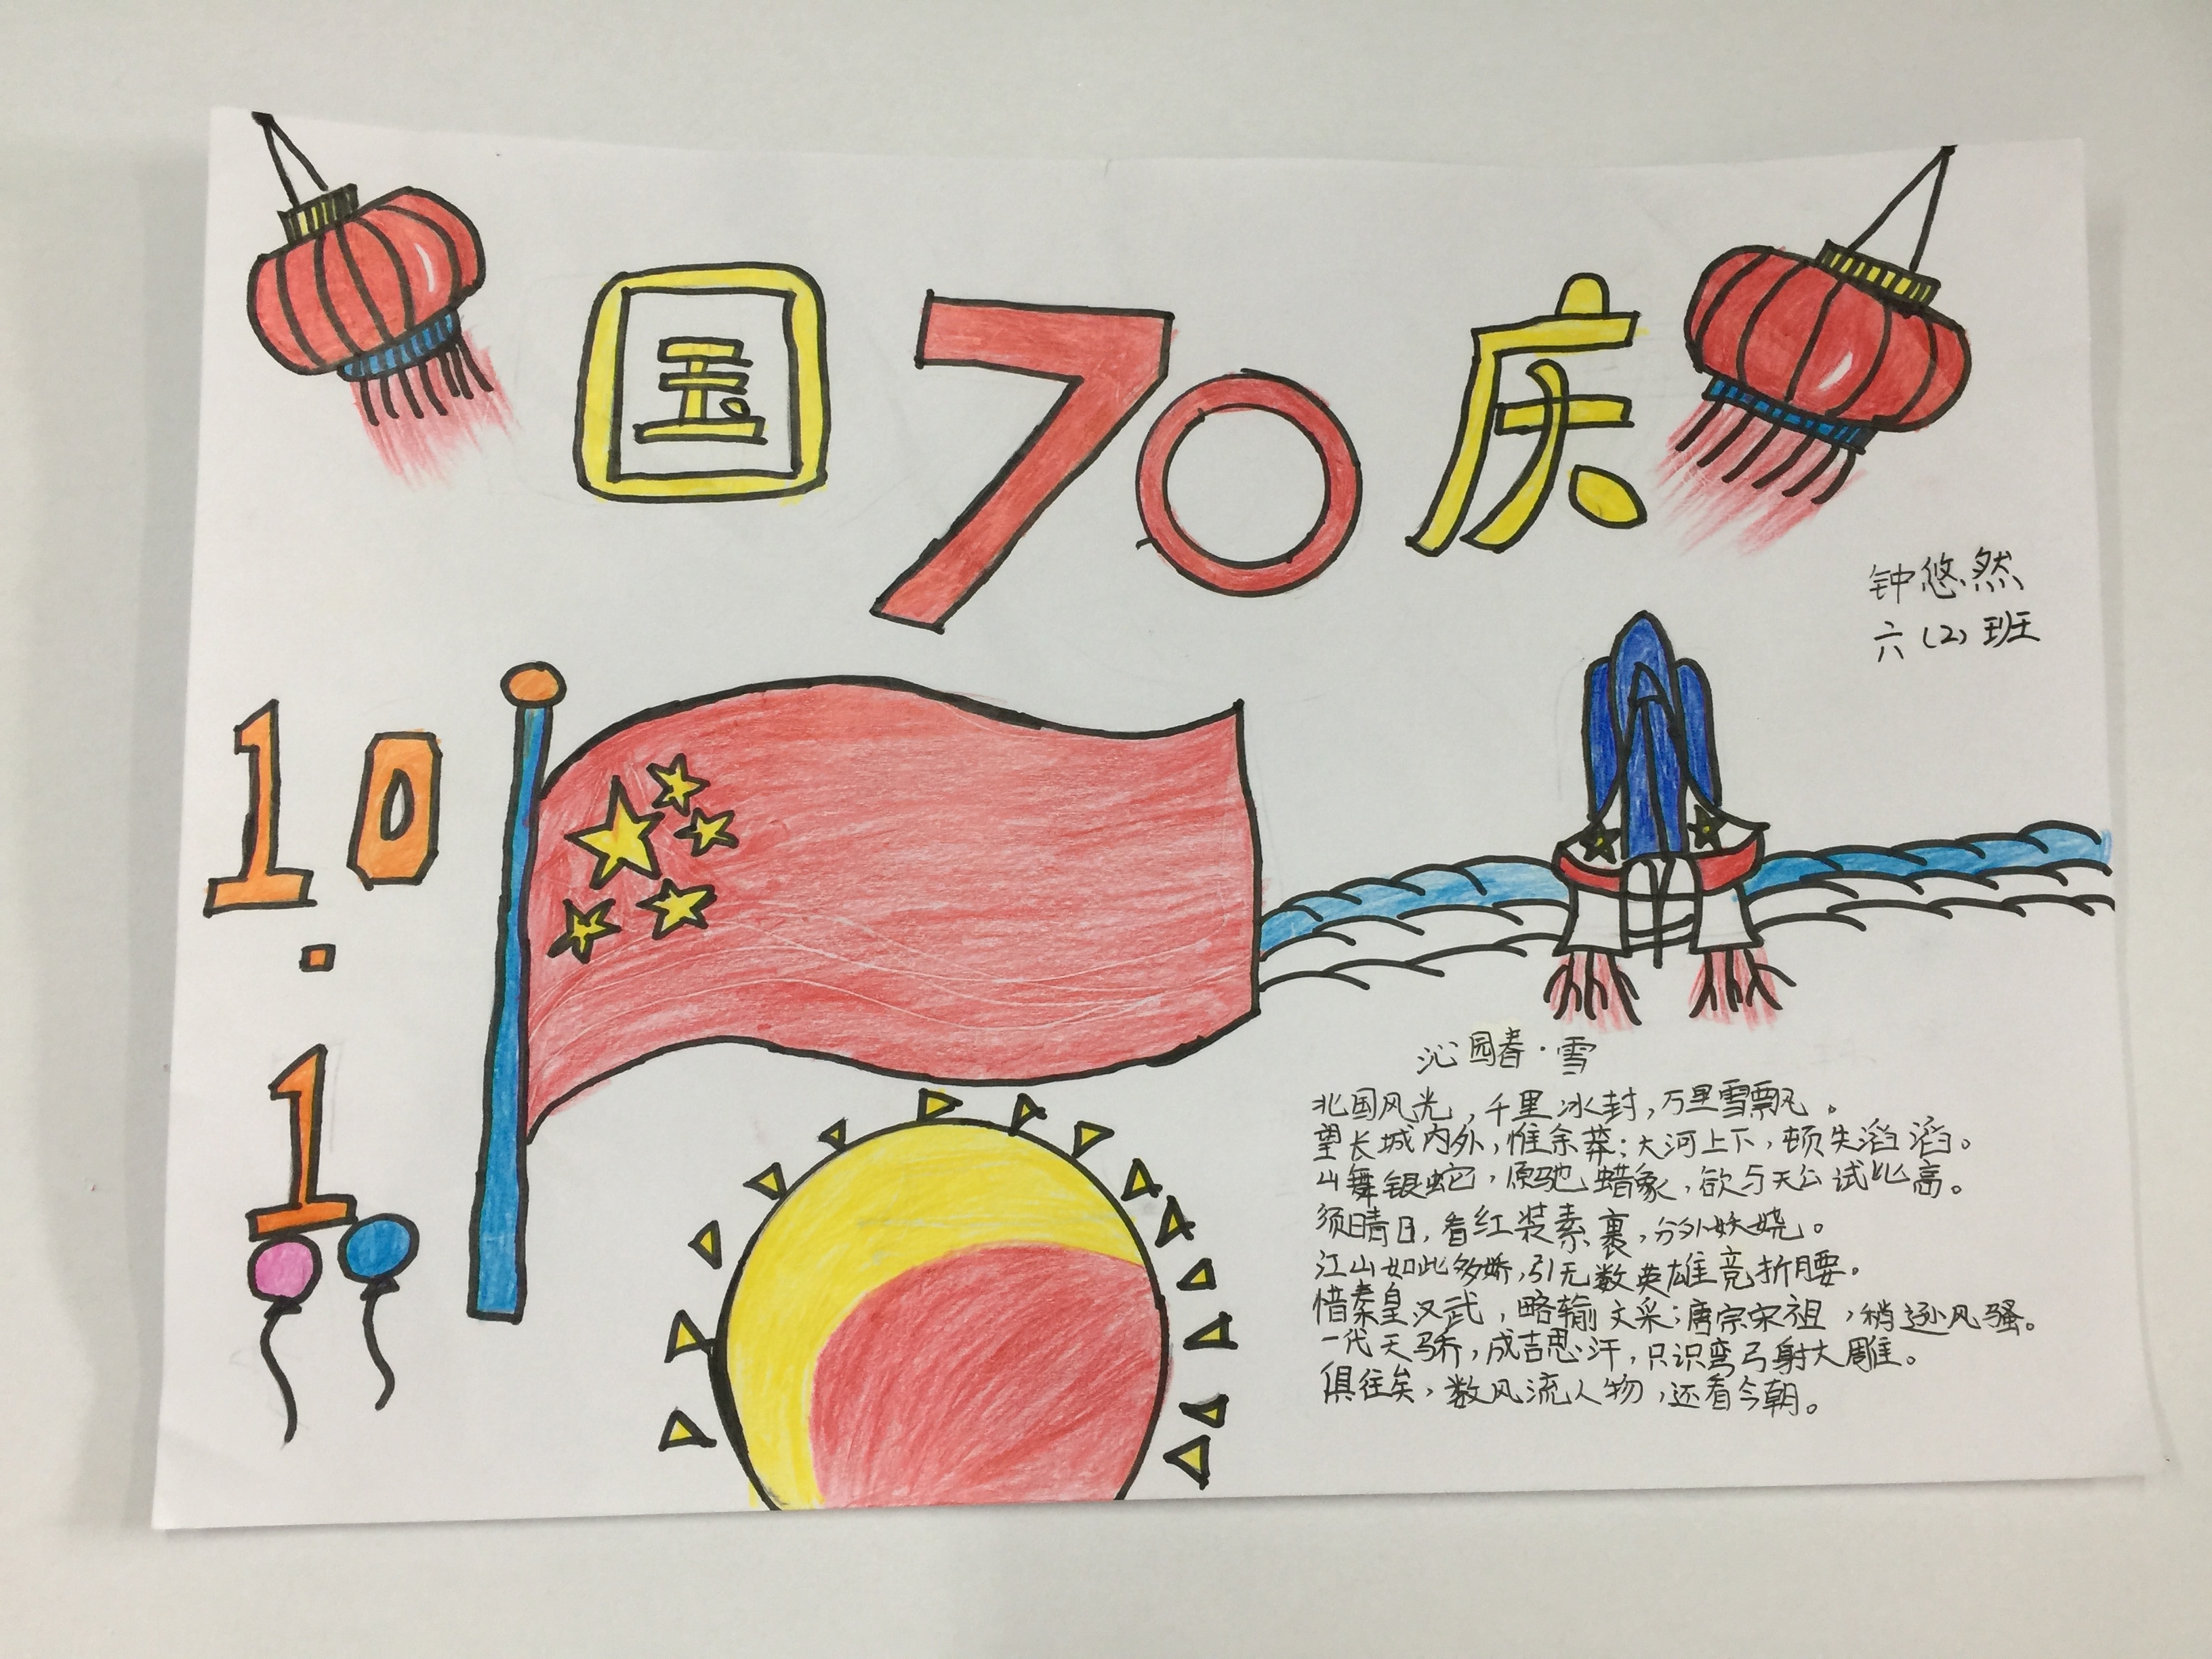 国70庆
钟悠然
六(2)班
10
.
1
沁园春·雪
北国风光，千里冰封，万里雪飘。
望长城内外，惟余莽；大河上下，顿失滔滔。
山舞银蛇，原驰蜡象，欲与天公试比高。
须晴日，看红装素裹，分外妖娆。
江山如此多娇，引无数英雄竞折腰。
惜秦皇汉武，略输文采；唐宗宋祖，稍逊风骚。
一代天骄，成吉思汗，只识弯弓射大雕。
俱往矣，数风流人物，还看今朝。